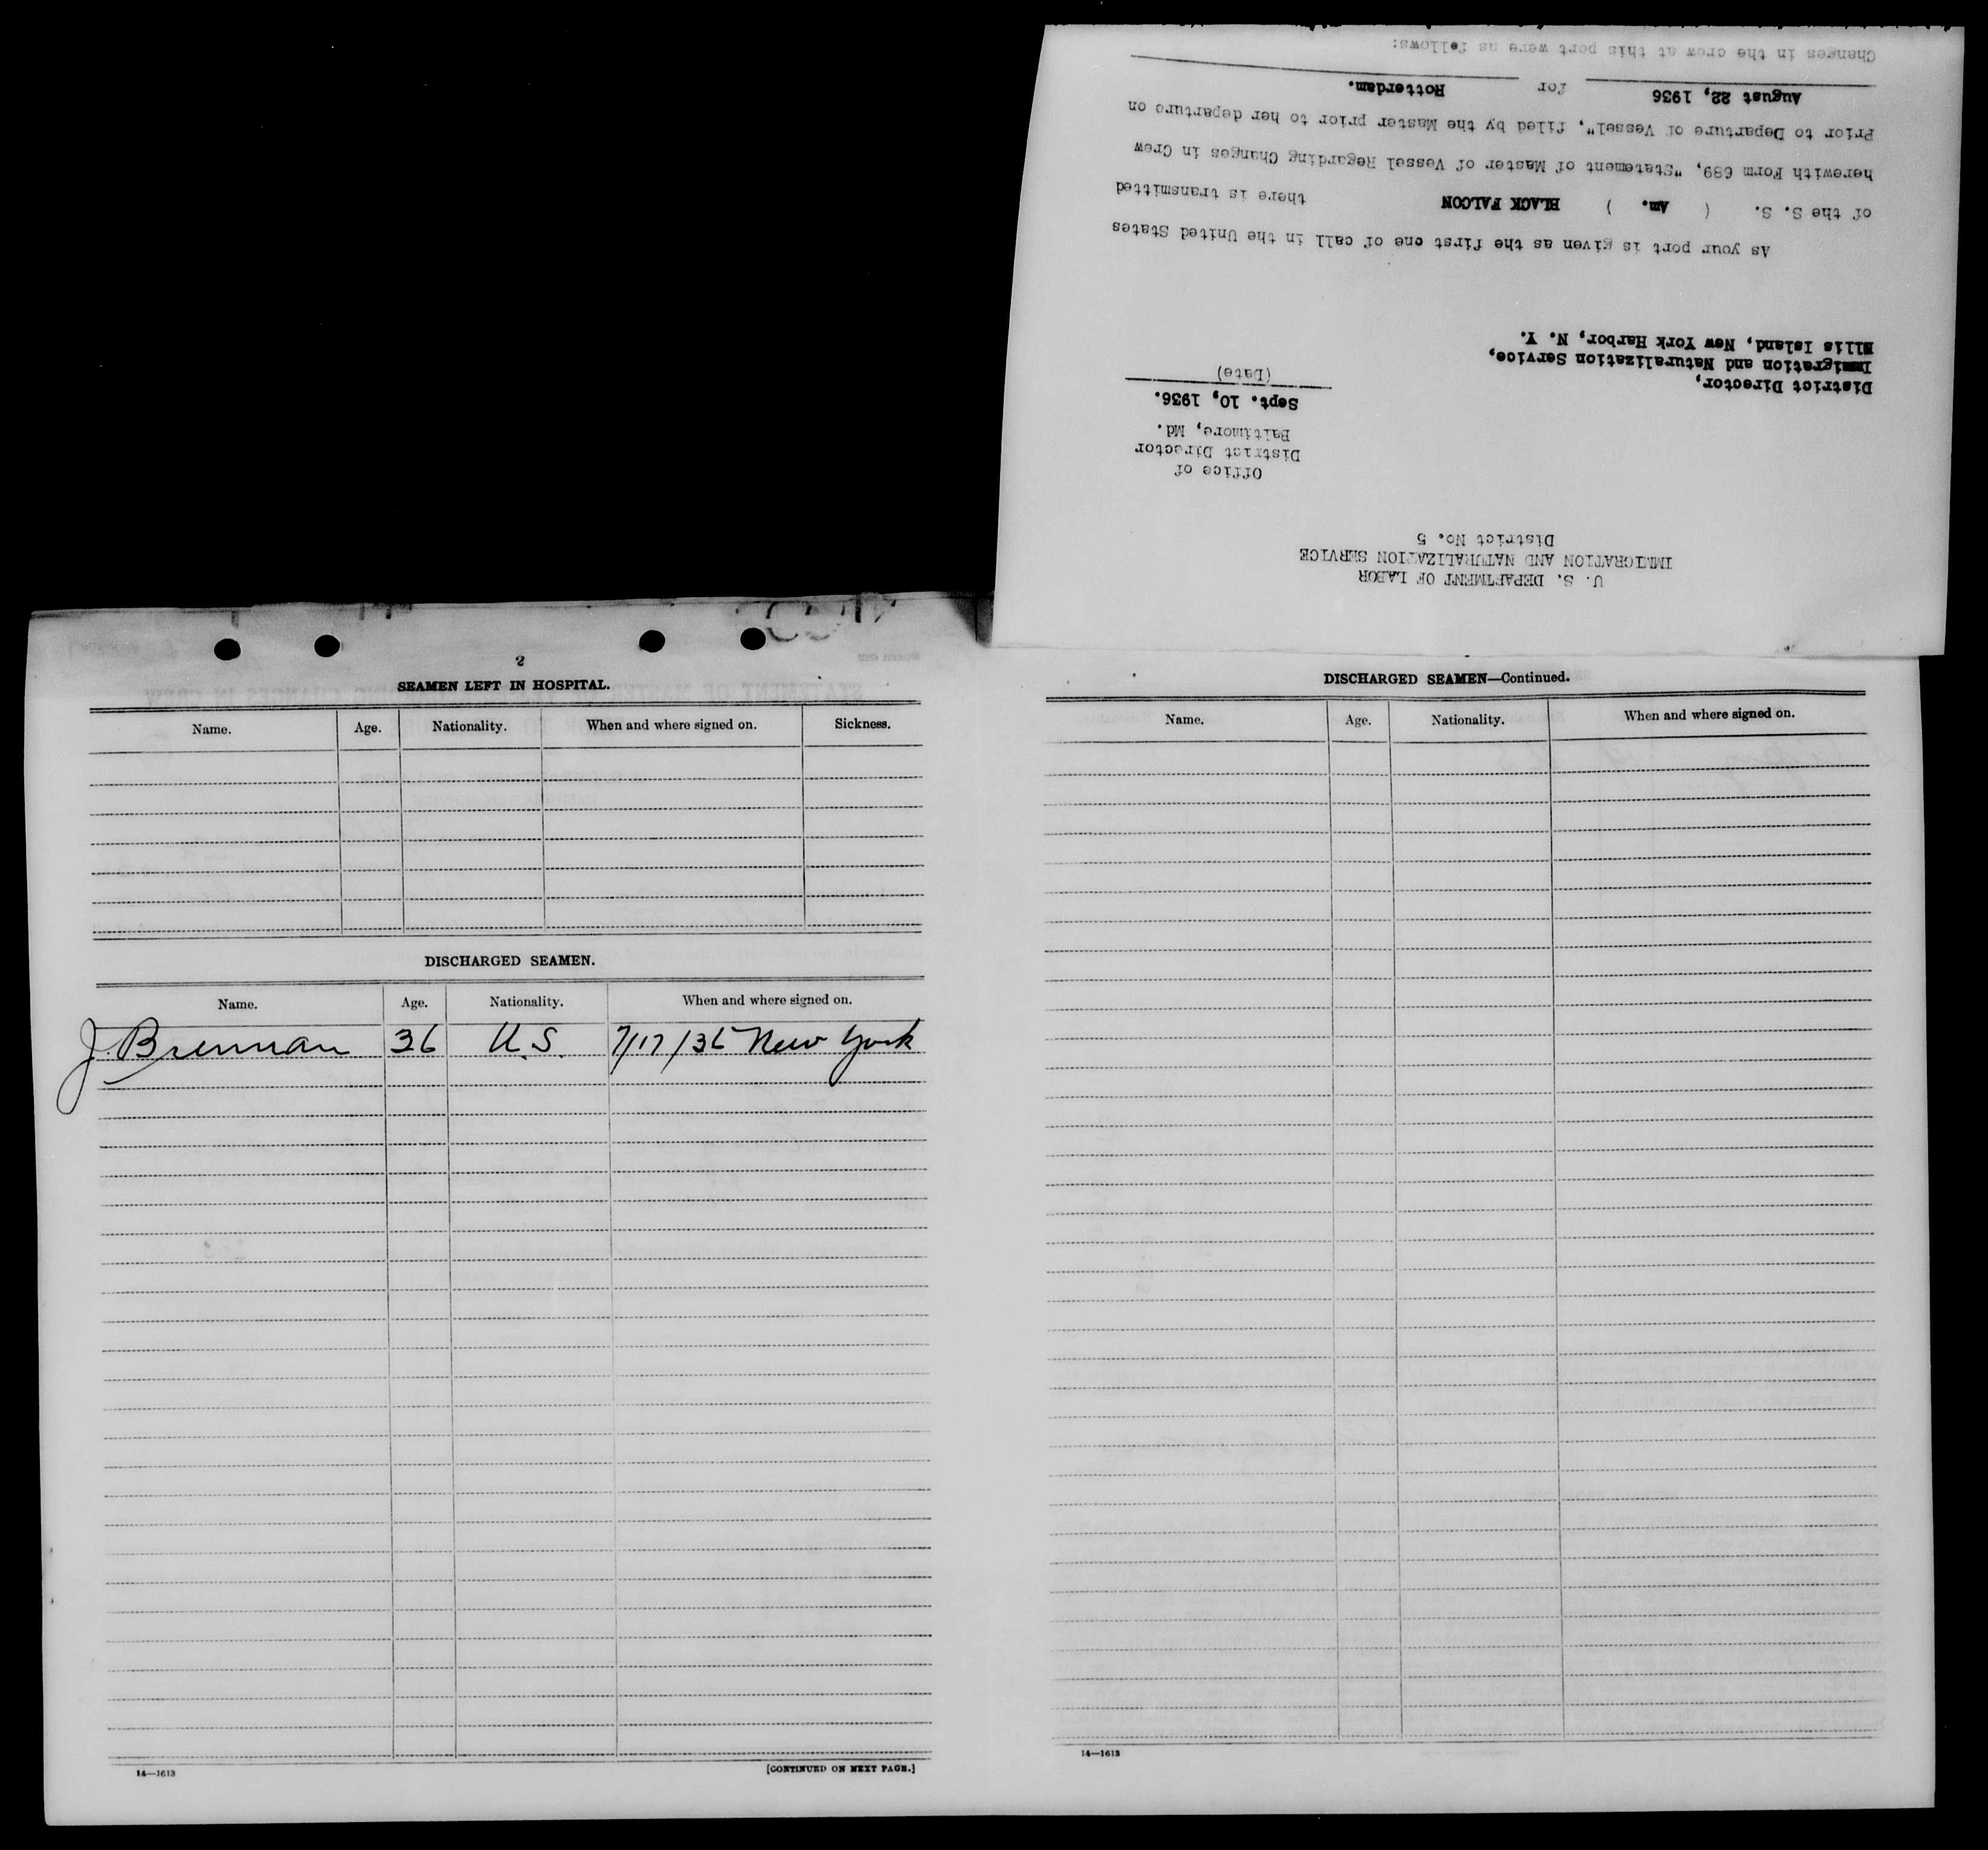 U. S. DEPARTMENT OF LABOR
IMMIGRATION AND NATURALIZATION SERVICE
District No. 5
Office of
District Director
Baltimore, Md.
Sept. 10, 1936.
(Date)
District Director,
Immigration and Naturalization Service,
Ellis Island, New York Harbor, N. Y.
As your port is given as the first one of call in the United States
of the S. S. ( Am. ) BLACK FALCON there is transmitted
herewith Form 689, "Statement of Master of Vessel Regarding Changes in Crew
Prior to Departure of Vessel", filed by the Master prior to her departure on
August 22, 1936 for Rotterdam.
Changes in the crew at this port were as follows:
2
SEAMEN LEFT IN HOSPITAL.
Name. Age. Nationality. When and where signed on. Sickness.
DISCHARGED SEAMEN.
Name. Age. Nationality. When and where signed on.
J. Brennan 36 U.S. 7/17/36 New York
14—1613 [CONTINUED ON NEXT PAGE.]
DISCHARGED SEAMEN—Continued.
Name. Age. Nationality. When and where signed on.
14—1613